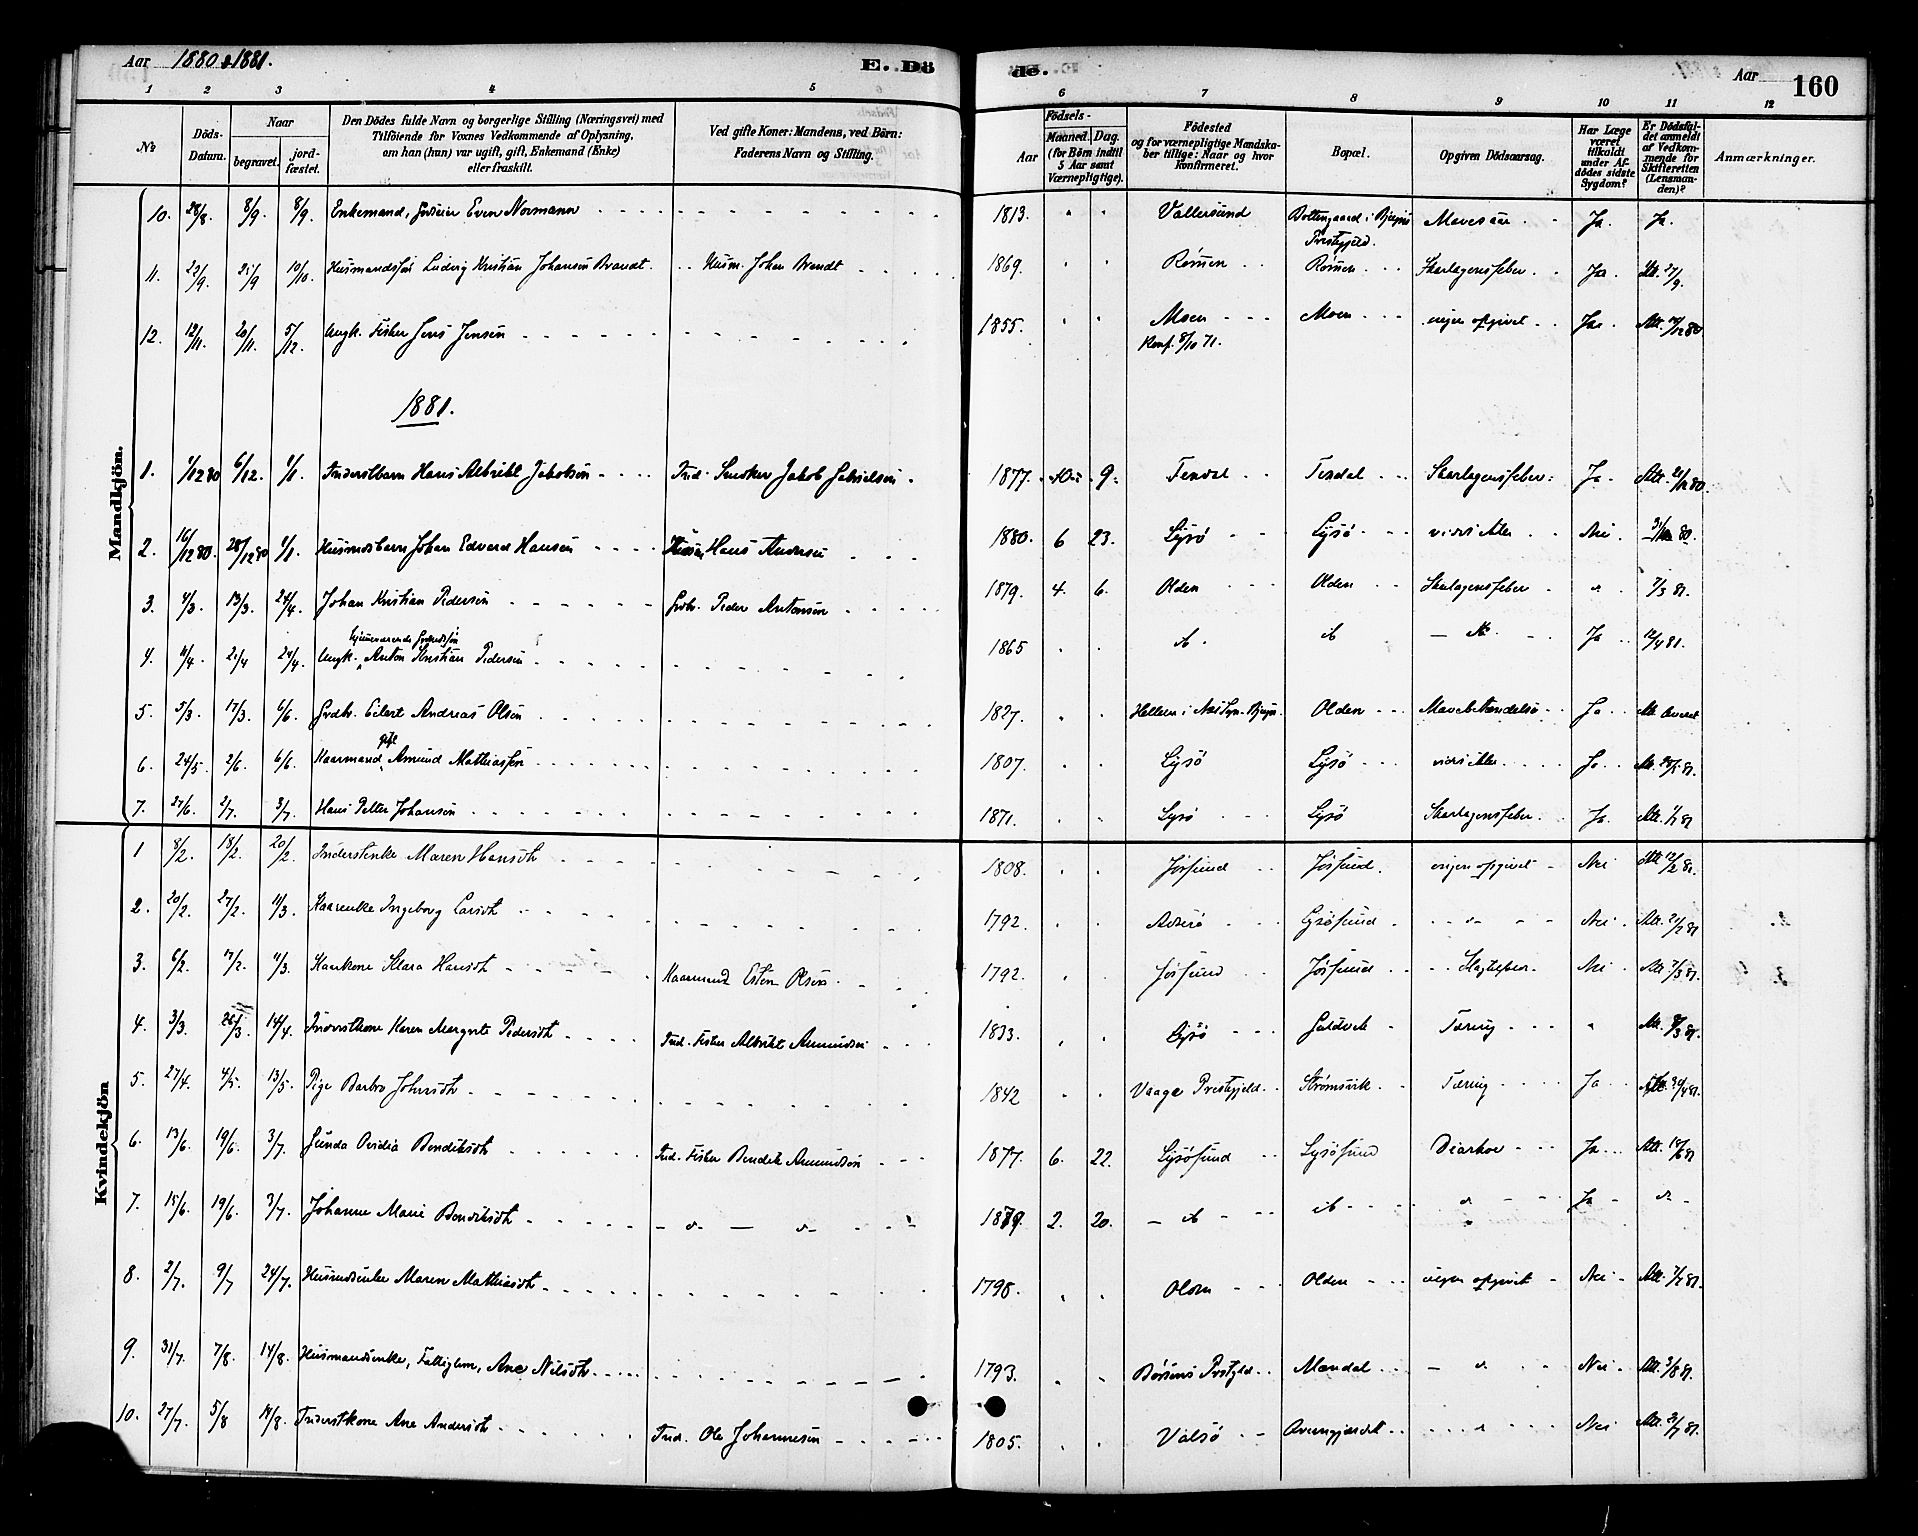 Aar 1880 & 1881.
E. Dö
de.
Aar
160
1 2 3 4 5 6 7 8 9 10 11 12
No
Döds-
Datum.
Naar
begravet.
jord-
fæstet.
Den Dödes fulde Navn og borgerlige Stilling (Næringsvei) med
Tilföiende for Voxnes Vedkommende af Oplysning,
om han (hun) var ugift, gift, Enkemand (Enke)
eller fraskilt.
Ved gifte Koner: Mandens, ved Börn:
Faderens Navn og Stilling.
Födsels-
Aar
Maaned. Dag.
(for Börn indtil
5 Aar samt
Værnepligtige).
Födested
og for værnepligtige Mandska-
ber tillige: Naar og hvor
konfirmeret.
Bopæl.
Opgiven Dödsaarsag.
Har Læge
været
tilkaldt
under Af-
dödes sidste
Sygdom?
Er Dödsfal-
det anmeldt
af Vedkom-
mende for
Skifteretten
(Lensman-
den)?
Anmærkninger.
Mandkjön.
10. 28/8. 8/9. 8/9. Enkemand, Even Normann 1813. Vallersund Bottengaard i Bjugns Mavesaar Ja Ja.
Prestgjeld.
11. 10/10. Husmandssøn Ludvig Kristian Johansen Brandt. Husm. Johan Brandt 1869. Rømen Rømen Skarlagensfeber Ja Att. 27/9.
12. 12/11. 20/11. 5/12. Ungk. Fisker Jens Jensen 1855. Moen Moen ingen opgivet Ja
Konf. 8/10 71.
1881.
1. 1/12 80 6/12. 1/1. Inderstbarn Hans Albrikt Jakobsen Ind. Snedker Jakob Gabrielsen 1877. 9. Tendal Tendal Skarlagensfeber Ja
2. 16/12 80. 28/12 80 1/1. Husmdsbarn Johan Edvard Hansen Hans Andersen 1880. 6 23. Lysø Lysø Nei
3. 4/3. 13/3. 24/4. Johan Kristian Pedersen Grdbr. Peder Antonsen 1879. 4. 6. Olden Olden Skarlagensfeber 7/3 81.
hjemmeværende
4. 11/4. 21/4 24/4. Ungk. Anton Kristian Pedersen 1865 Ja 12/4 81.
5. 5/3. 17/3. 6/6. Grdbr. Eilert Andreas Olsen 1827. Olden Mavebetændelse Ja
6. 24/5. 2/6. 6/6. Kaarmand Amund Mathiassen 1807. Lysø Lysø Ja
7. 27/6. 2/7. 3/7. Hans Petter Johansen 1871. Lysø Lysø Skarlagensfeber Ja Att. 1/7 81
Kvindekjön
1 8/2. 18/2. 20/2. Inderstenke Maren Hansdt 1808. Jøssund Jøssund. ingen opgivet Nei Att. 12/2 81.
2. 20/2. 27/2. 11/3. Kaarenke Ingeborg Larsdt 1792. Lysøsund Nei
3. 6/2. 17/2. 11/3. Kaarkone Klara Hansdt Kaarmand Esten Olsen 1792. Jøssund Jøssund Nei Att. 7/3 81.
4. 3/3. 26/3. 14/4. Inderstkone Karen Margrete Pedersdt Ind. Fisker Albrikt Amundsen 1833. Lysø Tæring
5. 27/4. 4/5. 13/5. Pige Barbro Johnsdt 1842 Vaage Prestgjeld Strømsvik Tæring Ja Att. 30/4 81.
6. 13/6 19/6. 3/7. Gunda Ovidia Bendiksdt Ind. Fisker Bendik Amundsen 1877. 6. 22. Lysøsund Lysøsund Diarhoe Ja Att. 18/6 81
7. 15/6. 19/6. 3/7. Johanne Marie Bendiksdt 1879. 2. 20. Ja
8. 2/7. 9/7 24/7. Husmdsenke Maren Mathiasdt 1798. Olden Olden ingen opgivet Nei
9. 31/7. 7/8. 14/8. Husmandsenke, Fattiglem, Ane Nilsdt 1793. Børsens Prstgjld Mændal Nei Att. 3/8 81.
10. 27/7. 5/8 14/8. Inderstkone Ane Andersdt Ind. Ole Johannesen 1805. Valsø Nei